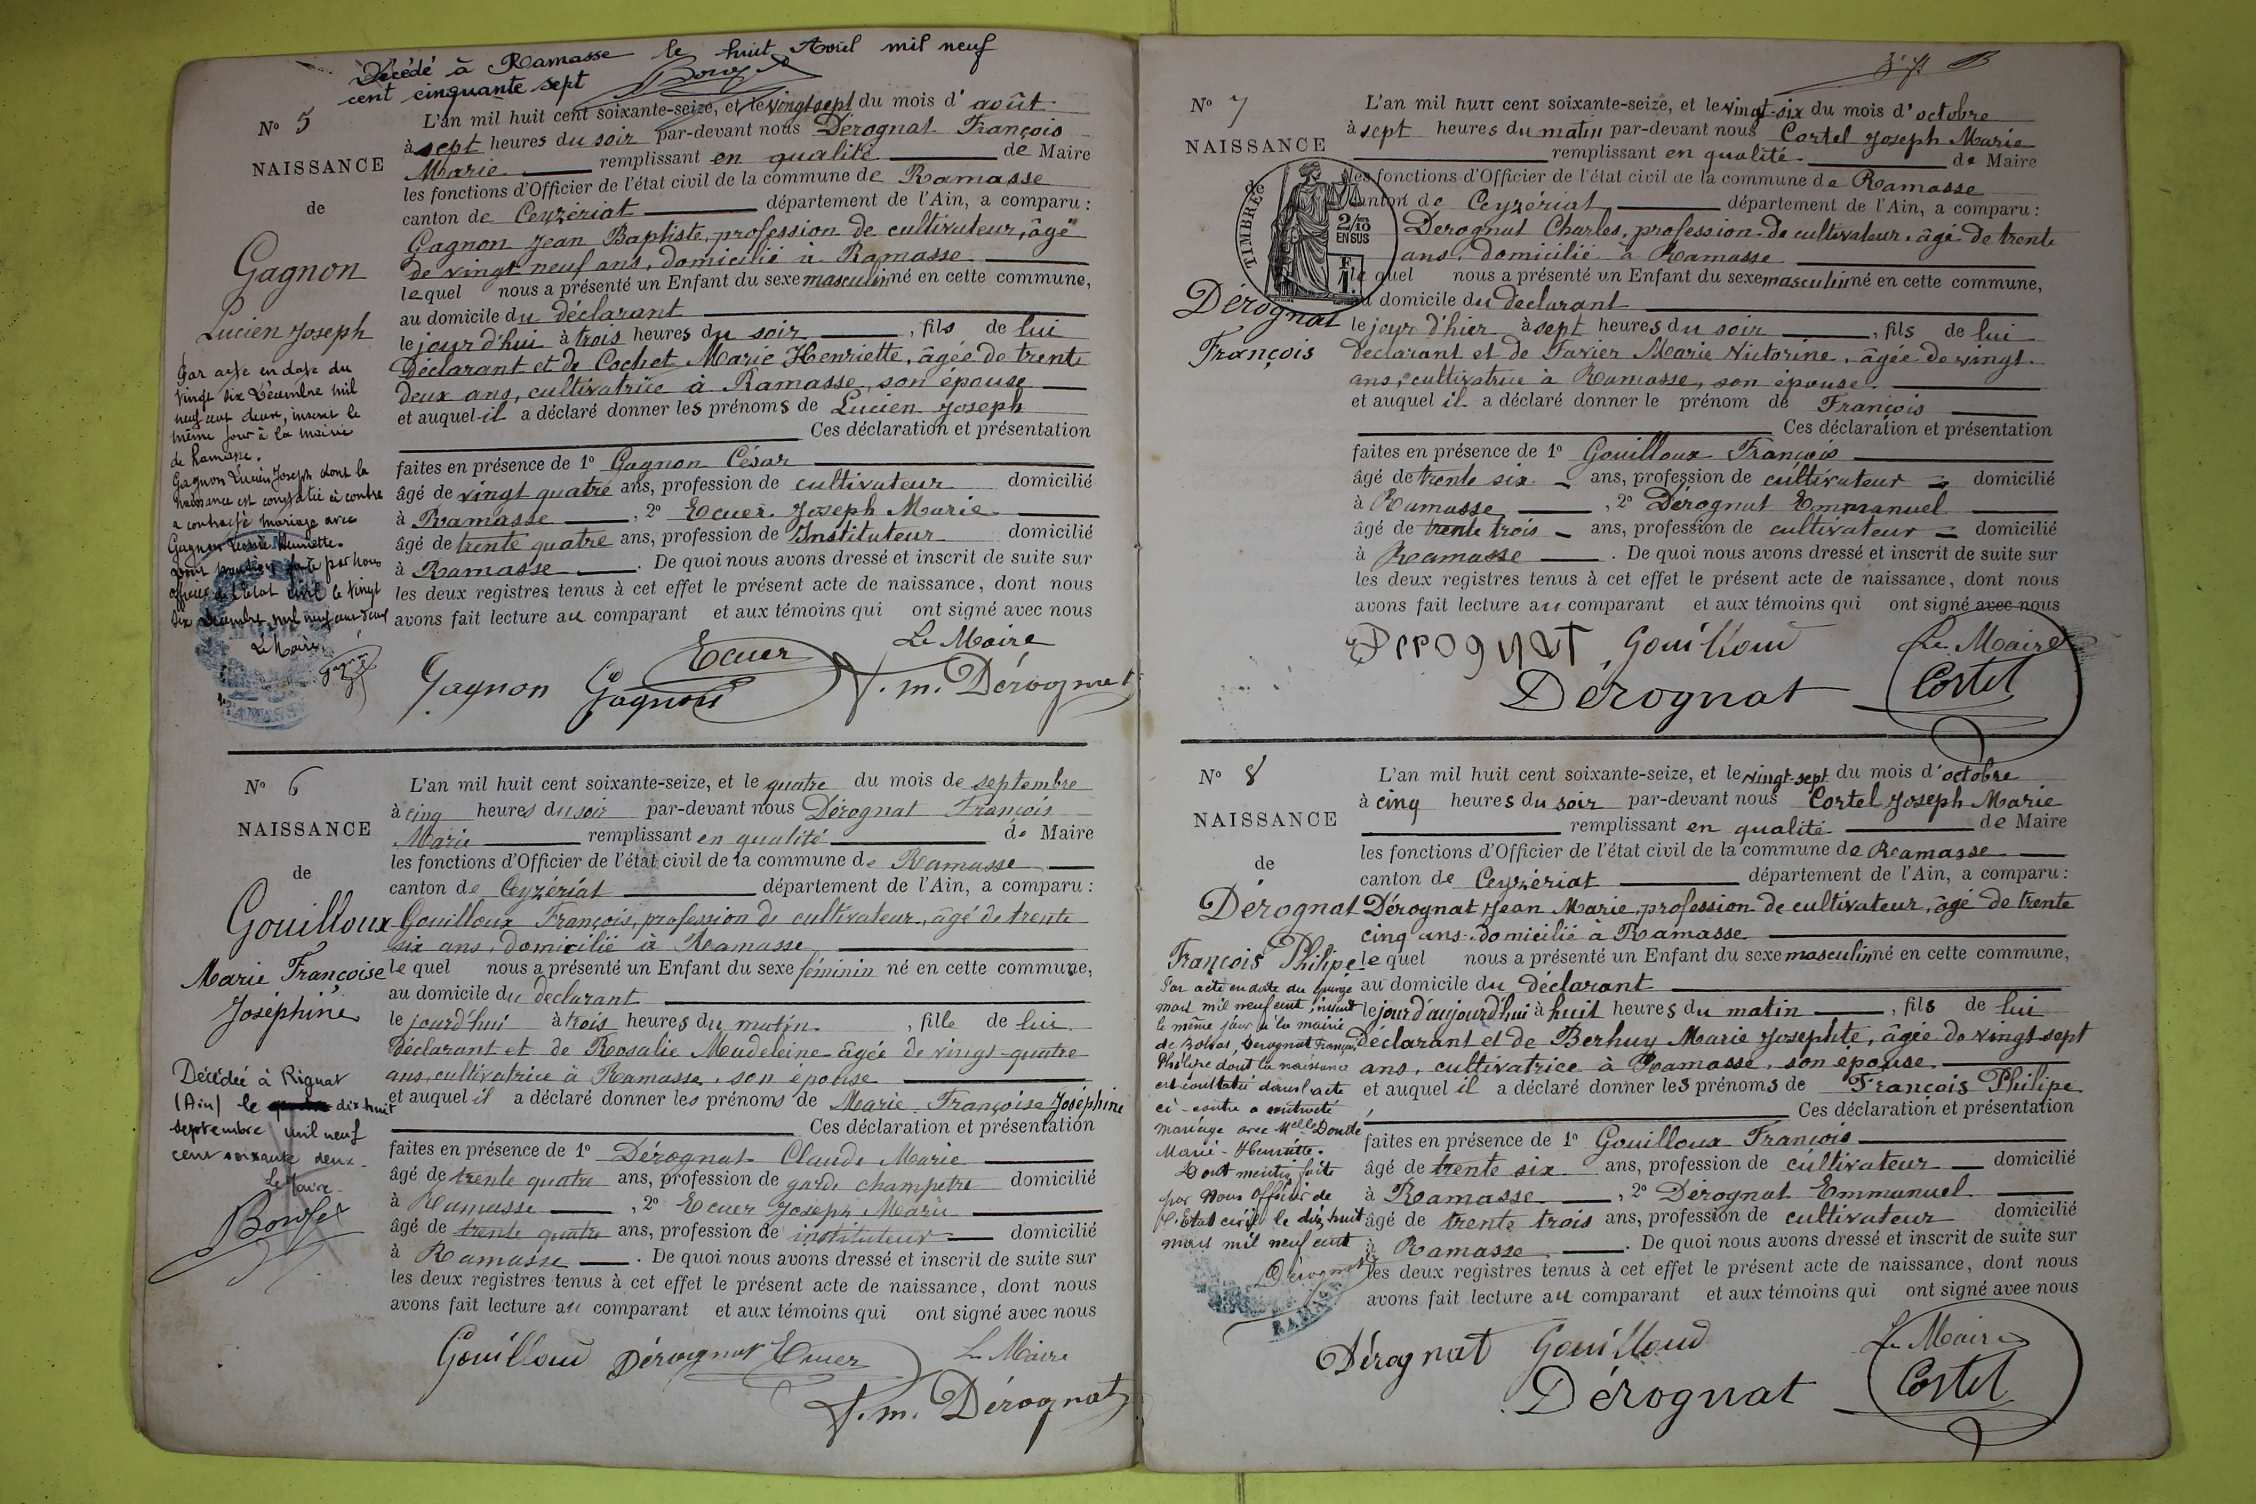 Décédé à Ramasse le huit Avril mil neuf
cent cinquante sept
N° 5
NAISSANCE
de
Gagnon
Lucien Joseph
Par acte en date du
vingt six Décembre mil
neuf cent deux, inscrit le
même jour à la mairie
de Ramasse.
Gagnon Lucien Joseph dont la
naissance est constatée ci contre
a contracté mariage avec
Gagnon Henriette.
mention faite par Nous
officier de l'état civil le vingt
six décembre mil neuf cent deux
Le Maire,
Gagnon
L'an mil huit cent soixante-seize, et le vingt sept du mois d'août
à sept heures du soir par-devant nous Dérognat François
Marie remplissant en qualité de Maire
les fonctions d'Officier de l'état civil de la commune de Ramasse
canton de Ceyzériat département de l'Ain, a comparu :
Gagnon Jean Baptiste, profession de cultivateur, âgé
de vingt neuf ans, domicilié à Ramasse
lequel nous a présenté un Enfant du sexe masculin né en cette commune,
au domicile du déclarant
le jour d'hui à trois heures du soir , fils de lui
Déclarant et de Cochet Marie Henriette, âgée de trente
deux ans, cultivatrice à Ramasse, son épouse
et auquel il a déclaré donner les prénoms de Lucien Joseph
Ces déclaration et présentation
faites en présence de 1° Gagnon César
âgé de vingt quatre ans, profession de cultivateur domicilié
à Ramasse , 2° Ecuer Joseph Marie
âgé de trente quatre ans, profession de Instituteur domicilié
à Ramasse . De quoi nous avons dressé et inscrit de suite sur
les deux registres tenus à cet effet le présent acte de naissance, dont nous
avons fait lecture au comparant et aux témoins qui ont signé avec nous
Le Maire
Gagnon Gagnon Ecuer f. m. Dérognat
N° 6
NAISSANCE
de
Gouilloux
Marie Françoise
Joséphine
Décédée à Rignat
(Ain) le dix huit
septembre mil neuf
cent soixante deux
Le Maire
L'an mil huit cent soixante-seize, et le quatre du mois de septembre
à cinq heures du soir par-devant nous Dérognat François
Marie remplissant en qualité de Maire
les fonctions d'Officier de l'état civil de la commune de Ramasse
canton de Ceyzériat département de l'Ain, a comparu :
Gouilloux François, profession de cultivateur, âgé de trente
six ans, domicilié à Ramasse
lequel nous a présenté un Enfant du sexe féminin né en cette commune,
au domicile du declarant
le jourd'hui à trois heures du matin , fille de lui
Déclarant et de Rosalie Madeleine âgée de vingt-quatre
ans, cultivatrice à Ramasse, son épouse
et auquel il a déclaré donner les prénoms de Marie Françoise Joséphine
Ces déclaration et présentation
faites en présence de 1° Dérognat Claude Marie
âgé de trente quatre ans, profession de garde champetre domicilié
à Ramasse , 2° Ecuer Joseph Marie
âgé de trente quatre ans, profession de instituteur domicilié
à Ramasse . De quoi nous avons dressé et inscrit de suite sur
les deux registres tenus à cet effet le présent acte de naissance, dont nous
avons fait lecture au comparant et aux témoins qui ont signé avec nous
Gouilloud Dérognat Ecuer Le Maire
f. m. Dérognat
N° 7
NAISSANCE
TIMBRE de
2/10 EN SUS
Dérognat
François
L'an mil huit cent soixante-seize, et le vingt-six du mois d'octobre
à sept heures du matin par-devant nous Cortel Joseph Marie
remplissant en qualité de Maire
les fonctions d'Officier de l'état civil de la commune de Ramasse
canton de Ceyzériat département de l'Ain, a comparu :
Derognat Charles, profession de cultivateur, âgé de trente
ans, domicilié à Ramasse
lequel nous a présenté un Enfant du sexe masculin né en cette commune,
au domicile du declarant
le jour d'hier à sept heures du soir , fils de lui
declarant et de Favier Marie Victorine, âgée de vingt
ans, cultivatrice à Ramasse, son épouse.
et auquel il a déclaré donner le prénom de François
Ces déclaration et présentation
faites en présence de 1° Gouilloux François
âgé de trente six ans, profession de cultivateur domicilié
à Ramasse , 2° Dérognat Emmanuel
âgé de trente trois ans, profession de cultivateur domicilié
à Ramasse . De quoi nous avons dressé et inscrit de suite sur
les deux registres tenus à cet effet le présent acte de naissance, dont nous
avons fait lecture au comparant et aux témoins qui ont signé avec nous
Derognat Gouilloud Le Maire
Dérognat Cortel
N° 8
NAISSANCE
de
Dérognat
François Philipe
Par acte en date du quinze
mars mil neuf cent, inscrit
le même jour à la mairie
de Bohas, Derognat François
Philipe dont la naissance
est constatée dans l'acte
ci-contre a contracté
mariage avec Melle Doudé
Marie-Henriette.
Dont mention faite
par Nous Officier de
l'Etat civil le dix huit
mars mil neuf cent
Dérognat
RAMASSE
L'an mil huit cent soixante-seize, et le vingt-sept du mois d'octobre
à cinq heures du soir par-devant nous Cortel Joseph Marie
remplissant en qualité de Maire
les fonctions d'Officier de l'état civil de la commune de Ramasse
canton de Ceyzériat département de l'Ain, a comparu :
Dérognat Jean Marie, profession de cultivateur, âgé de trente
cinq ans, domicilié à Ramasse
lequel nous a présenté un Enfant du sexe masculin né en cette commune,
au domicile du déclarant
le jour d'aujourd'hui à huit heures du matin , fils de lui
déclarant et de Berhuy Marie Josephte, âgée de vingt-sept
ans, cultivatrice à Ramasse, son épouse
et auquel il a déclaré donner les prénoms de François Philipe
Ces déclaration et présentation
faites en présence de 1° Gouilloux François
âgé de trente six ans, profession de cultivateur domicilié
à Ramasse , 2° Dérognat Emmanuel
âgé de trente trois ans, profession de cultivateur domicilié
à Ramasse . De quoi nous avons dressé et inscrit de suite sur
les deux registres tenus à cet effet le présent acte de naissance, dont nous
avons fait lecture au comparant et aux témoins qui ont signé avec nous
Dérognat Gouilloud Le Maire
Dérognat Cortel